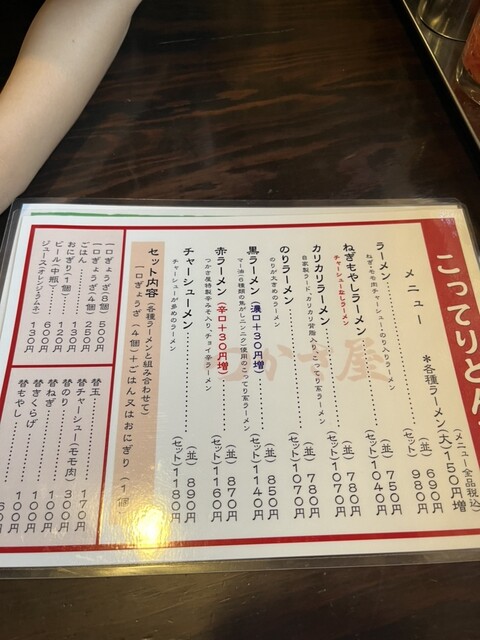 こってりとん
メニュー
*各種ラーメン(大)150円増
(メニュー全品税込)
ラーメン……(並)690円
ねぎ・モモ肉チャーシュー・のり入りラーメン
(セット)980円
ねぎもやしラーメン……(並)750円
チャーシューなしラーメン
(セット)1040円
カリカリラーメン……(並)780円
自家製ラード、カリカリ背脂入り、こってり系ラーメン
(セット)1070円
のりラーメン……(並)780円
のりが大きめのラーメン
(セット)1070円
黒ラーメン(濃口+30円増)……(並)850円
マー油(6種類の焦がしニンニク)使用のこってり系ラーメン
(セット)1140円
赤ラーメン(辛口+30円増)……(並)870円
つかさ屋特製辛みそ入り、チョイ辛ラーメン
(セット)1160円
チャーシューメン……(並)890円
チャーシューが多めのラーメン
(セット)1180円
つかさ屋
セット内容(各種ラーメンと組み合わせて)
一口ぎょうざ(4個)+ごはん又はおにぎり(1個)
一口ぎょうざ(8個)500円
一口ぎょうざ(4個)250円
ごはん……130円
おにぎり(1個)120円
ビール(中瓶)……600円
ジュース(オレンジ&ラムネ)130円
替玉……170円
替チャーシュー(モモ肉)300円
替のり……100円
替ねぎ……100円
替きくらげ……100円
替もやし……60円